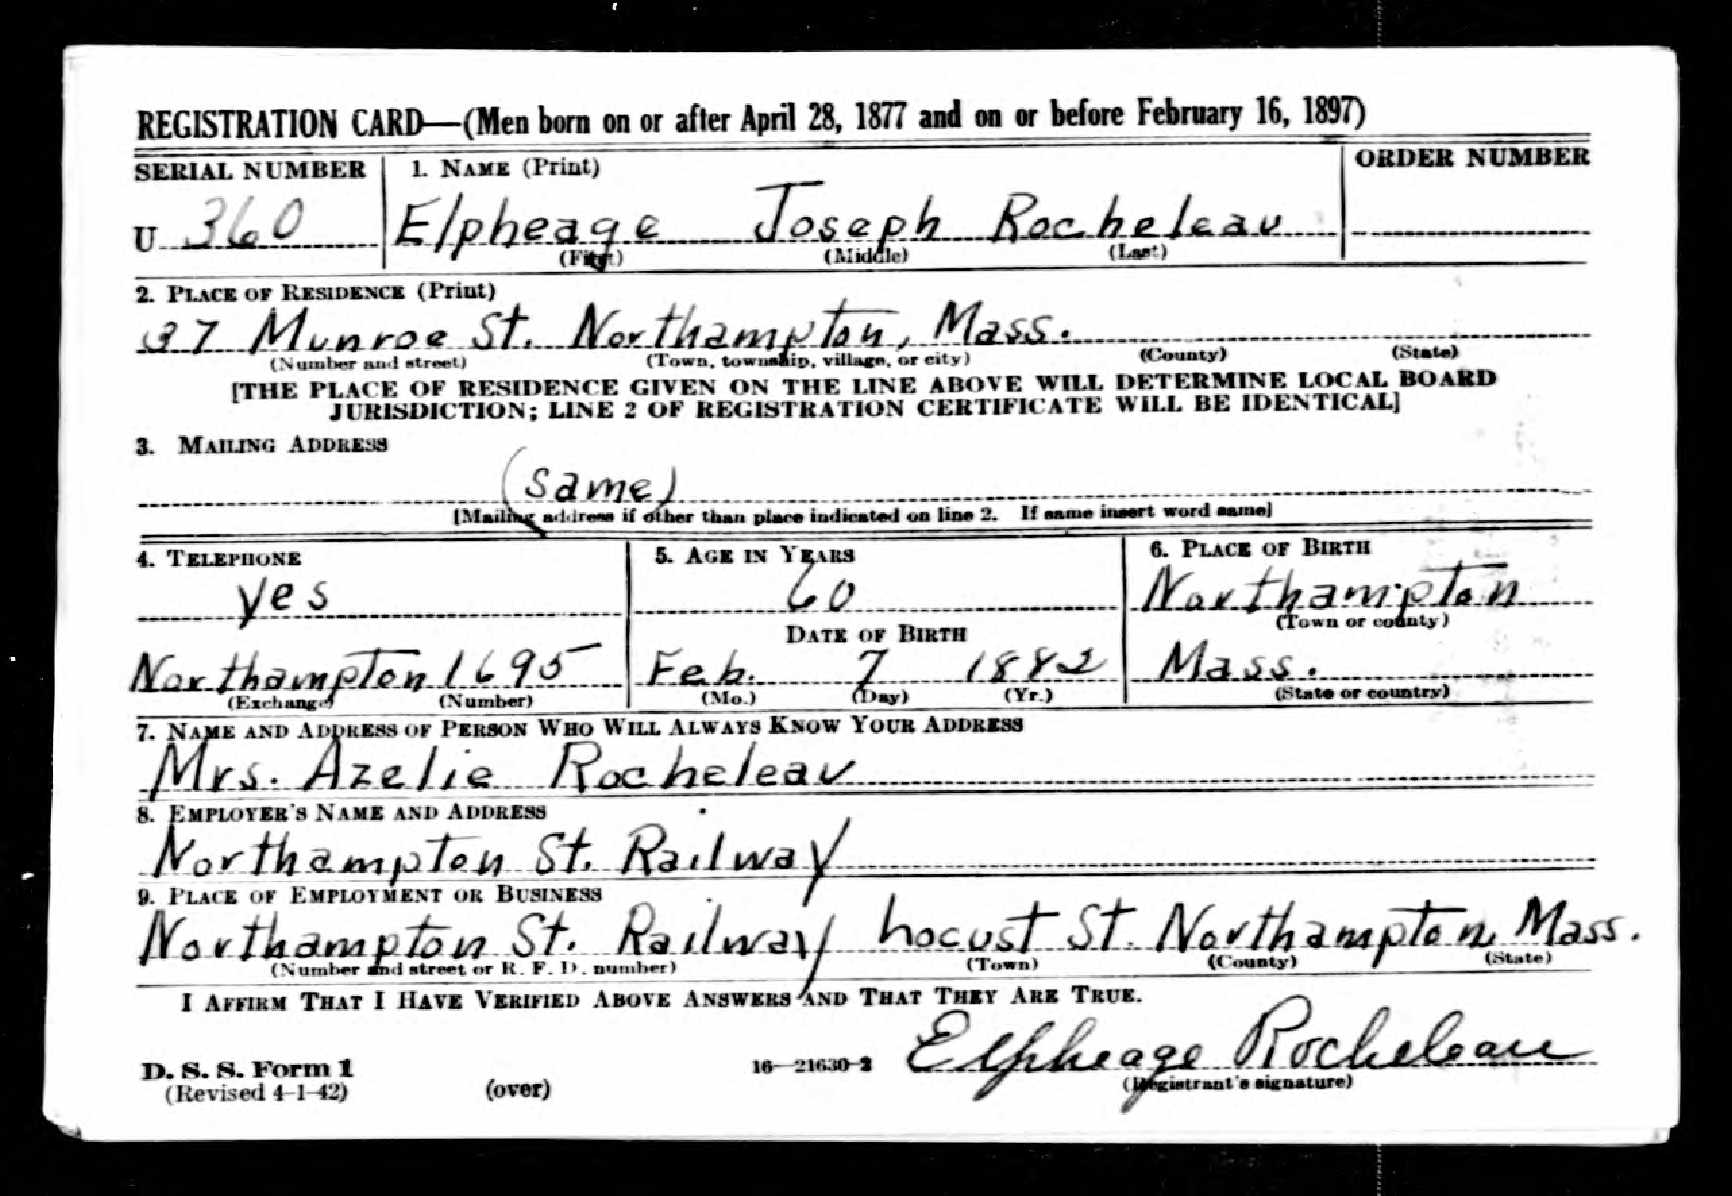 REGISTRATION CARD—(Men born on or after April 28, 1877 and on or before February 16, 1897)
SERIAL NUMBER 1. NAME (Print) ORDER NUMBER
U 360 Elpheage Joseph Rocheleau
(First) (Middle) (Last)
2. PLACE OF RESIDENCE (Print)
37 Munroe St. Northampton, Mass.
(Number and street) (Town, township, village, or city) (County) (State)
[THE PLACE OF RESIDENCE GIVEN ON THE LINE ABOVE WILL DETERMINE LOCAL BOARD
JURISDICTION; LINE 2 OF REGISTRATION CERTIFICATE WILL BE IDENTICAL]
3. MAILING ADDRESS
(same)
[Mailing address if other than place indicated on line 2. If same insert word same]
4. TELEPHONE 5. AGE IN YEARS 6. PLACE OF BIRTH
yes 60 Northampton
DATE OF BIRTH (Town or county)
Northampton 1695 Feb. 7 1882 Mass.
(Exchange) (Number) (Mo.) (Day) (Yr.) (State or country)
7. NAME AND ADDRESS OF PERSON WHO WILL ALWAYS KNOW YOUR ADDRESS
Mrs. Azelie Rocheleau
8. EMPLOYER'S NAME AND ADDRESS
Northampton St. Railway
9. PLACE OF EMPLOYMENT OR BUSINESS
Northampton St. Railway Locust St. Northampton, Mass.
(Number and street or R. F. D. number) (Town) (County) (State)
I AFFIRM THAT I HAVE VERIFIED ABOVE ANSWERS AND THAT THEY ARE TRUE.
Elpheage Rocheleau
D. S. S. Form 1 16—21630-2
(Revised 4-1-42) (over) (Registrant's signature)